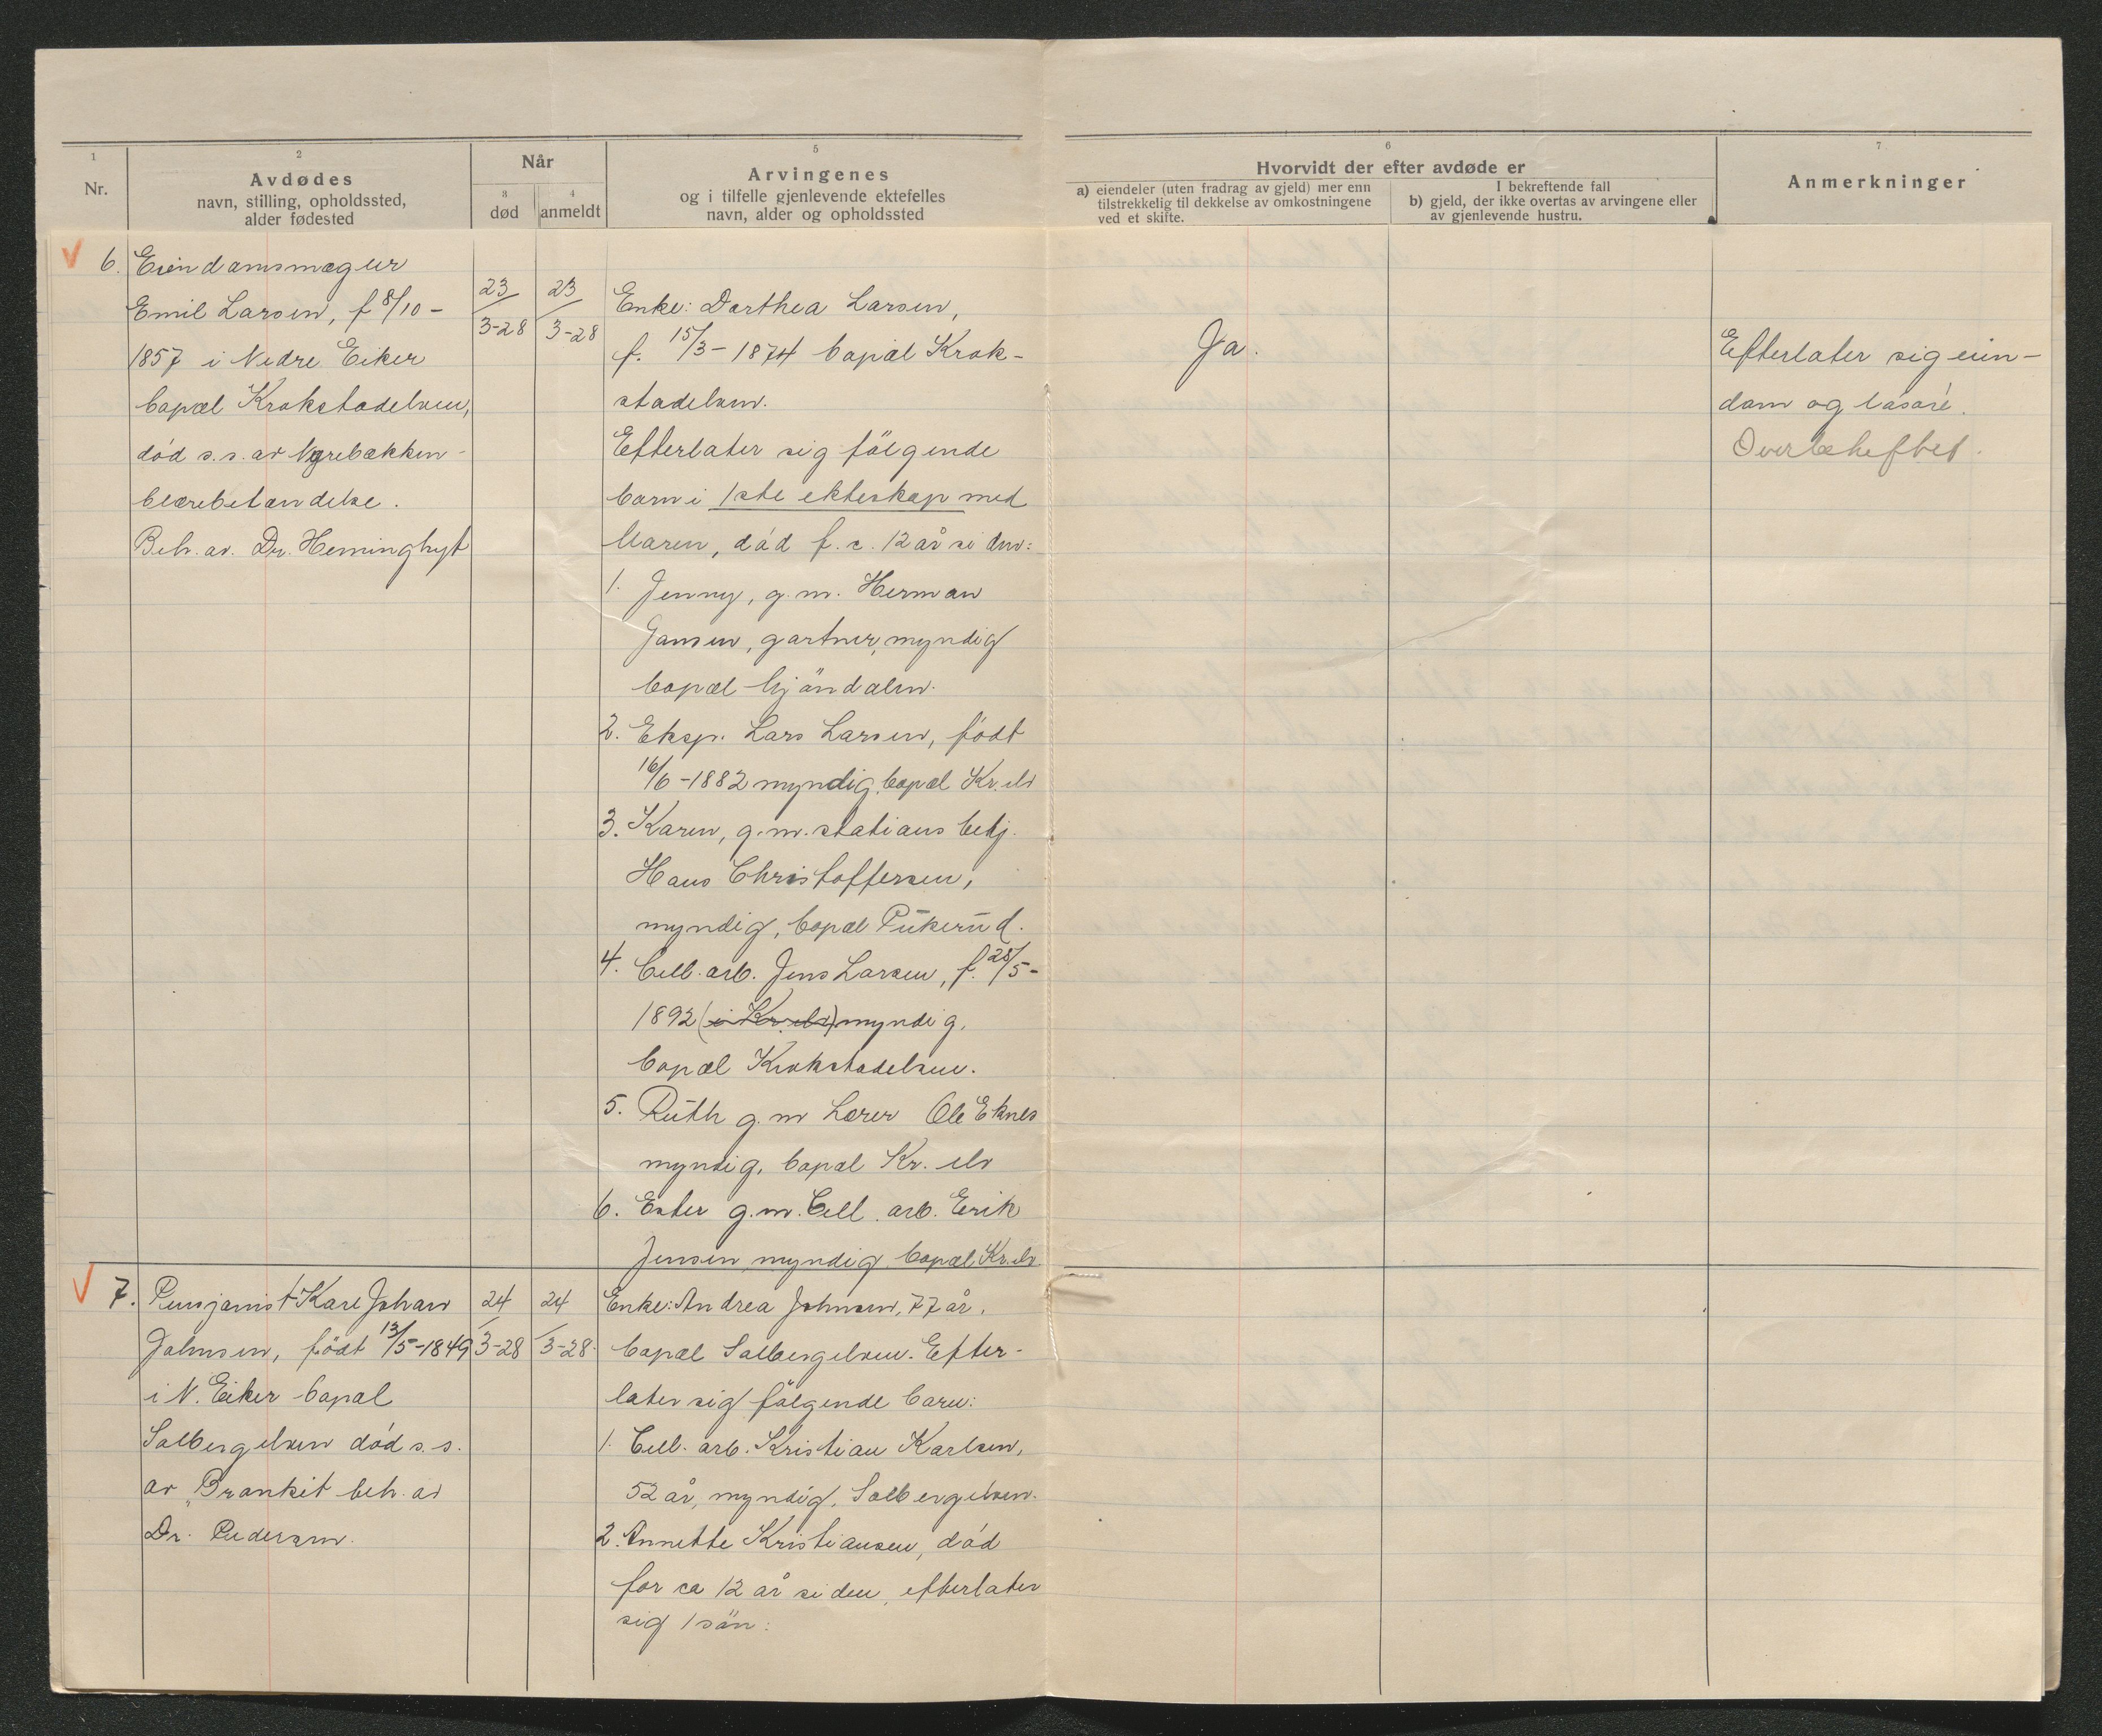 1
Nr.
2
Avdødes
navn, stilling, opholdssted,
alder fødested
Når
3
død
4
anmeldt
5
Arvingenes
og i tilfelle gjenlevende ektefelles
navn, alder og opholdssted
6
Hvorvidt der efter avdøde er
a) eiendeler (uten fradrag av gjeld) mer enn
tilstrekkelig til dekkelse av omkostningene
ved et skifte.
I bekreftende fall
b) gjeld, der ikke overtas av arvingene eller
av gjenlevende hustru.
7
Anmerkninger
6. Eiendomsmægler
Emil Larsen, f 8/10-
1857 i Nedre Eiker
bopæl Krokstadelven,
död s.s. av Nyrebækken-
blærebetændelse.
Beh. av. Dr. Heminghyt
23/3-28
23/3-28
Enke: Dorthea Larsen,
f. 15/3-1874 bopæl Krok-
stadelven.
Efterlater sig fölgende
barn i 1ste ekteskap med
Maren, död f. c. 12 år siden:
1. Jenny, g.m. Herman
Jansen, gartner, myndig
bopæl Mjöndalen.
2. Eksp. Lars Larsen, födt
16/6-1882 myndig, bopæl Kr.elv
3. Karen, g.m. stations betj.
Hans Christoffersen,
myndig, bopæl Pukerud.
4. Cell. arb. Jens Larsen, f. 28/5-
1892 (i Kr.elv) myndig.
bopæl Krokstadelven.
5. Ruth g.m Lærer Ole Eknes
myndig, bopæl Kr. elv
6. Ester g.m. Cell. arb. Erik
Jensen myndig bopæl Kr.elv.
Ja.
Efterlater sig eien-
dom og løsøre.
Overbeheftet.
7. Pensjonist Karl Johan
Johnsen, födt 13/5-1849
i N. Eiker bopæl
Solbergelven död s.s.
av „Bronkit beh. av
Dr. Pedersen.
24/3-28
24/3-28.
Enke: Andrea Johnsen, 77 år,
bopæl Solbergelven. Efter-
later sig fölgende barn:
1. Cell. arb. Kristian Karlsen,
52 år, myndig, Solbergelven.
2. Annette Kristiansen, död
for ca 12 år siden, efterlater
sig 1 sön: